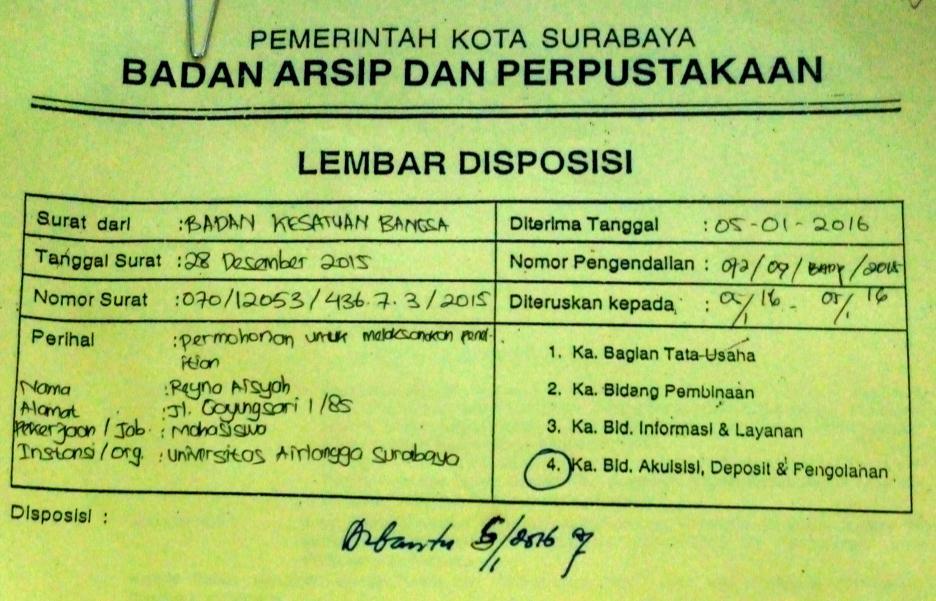 PEMERINTAH KOTA SURABAYA
BADAN ARSIP DAN PERPUSTAKAAN
LEMBAR DISPOSISI
Surat dari : BADAN KESATUAN BANGSA
Diterima Tanggal : 05-01-2016
Tanggal Surat : 28 Desember 2015
Nomor Pengendalian : 092/09/BAPK/2015
Nomor Surat : 070/12053/436.7.3/2015
Diteruskan kepada : 05/1 16 - 05/1 16
Perihal : permohonan untuk melaksanakan penel-
ition
Nama : Reyna Aisyah
Alamat : Jl. Gayungsari 1/85
Pekerjaan / Job : Mahasiswa
Instansi / Org. : Universitas Airlangga Surabaya
1. Ka. Bagian Tata Usaha
2. Ka. Bidang Pembinaan
3. Ka. Bid. Informasi & Layanan
4. Ka. Bid. Akuisisi, Deposit & Pengolahan
Disposisi :
Dibantu 5/1 2016